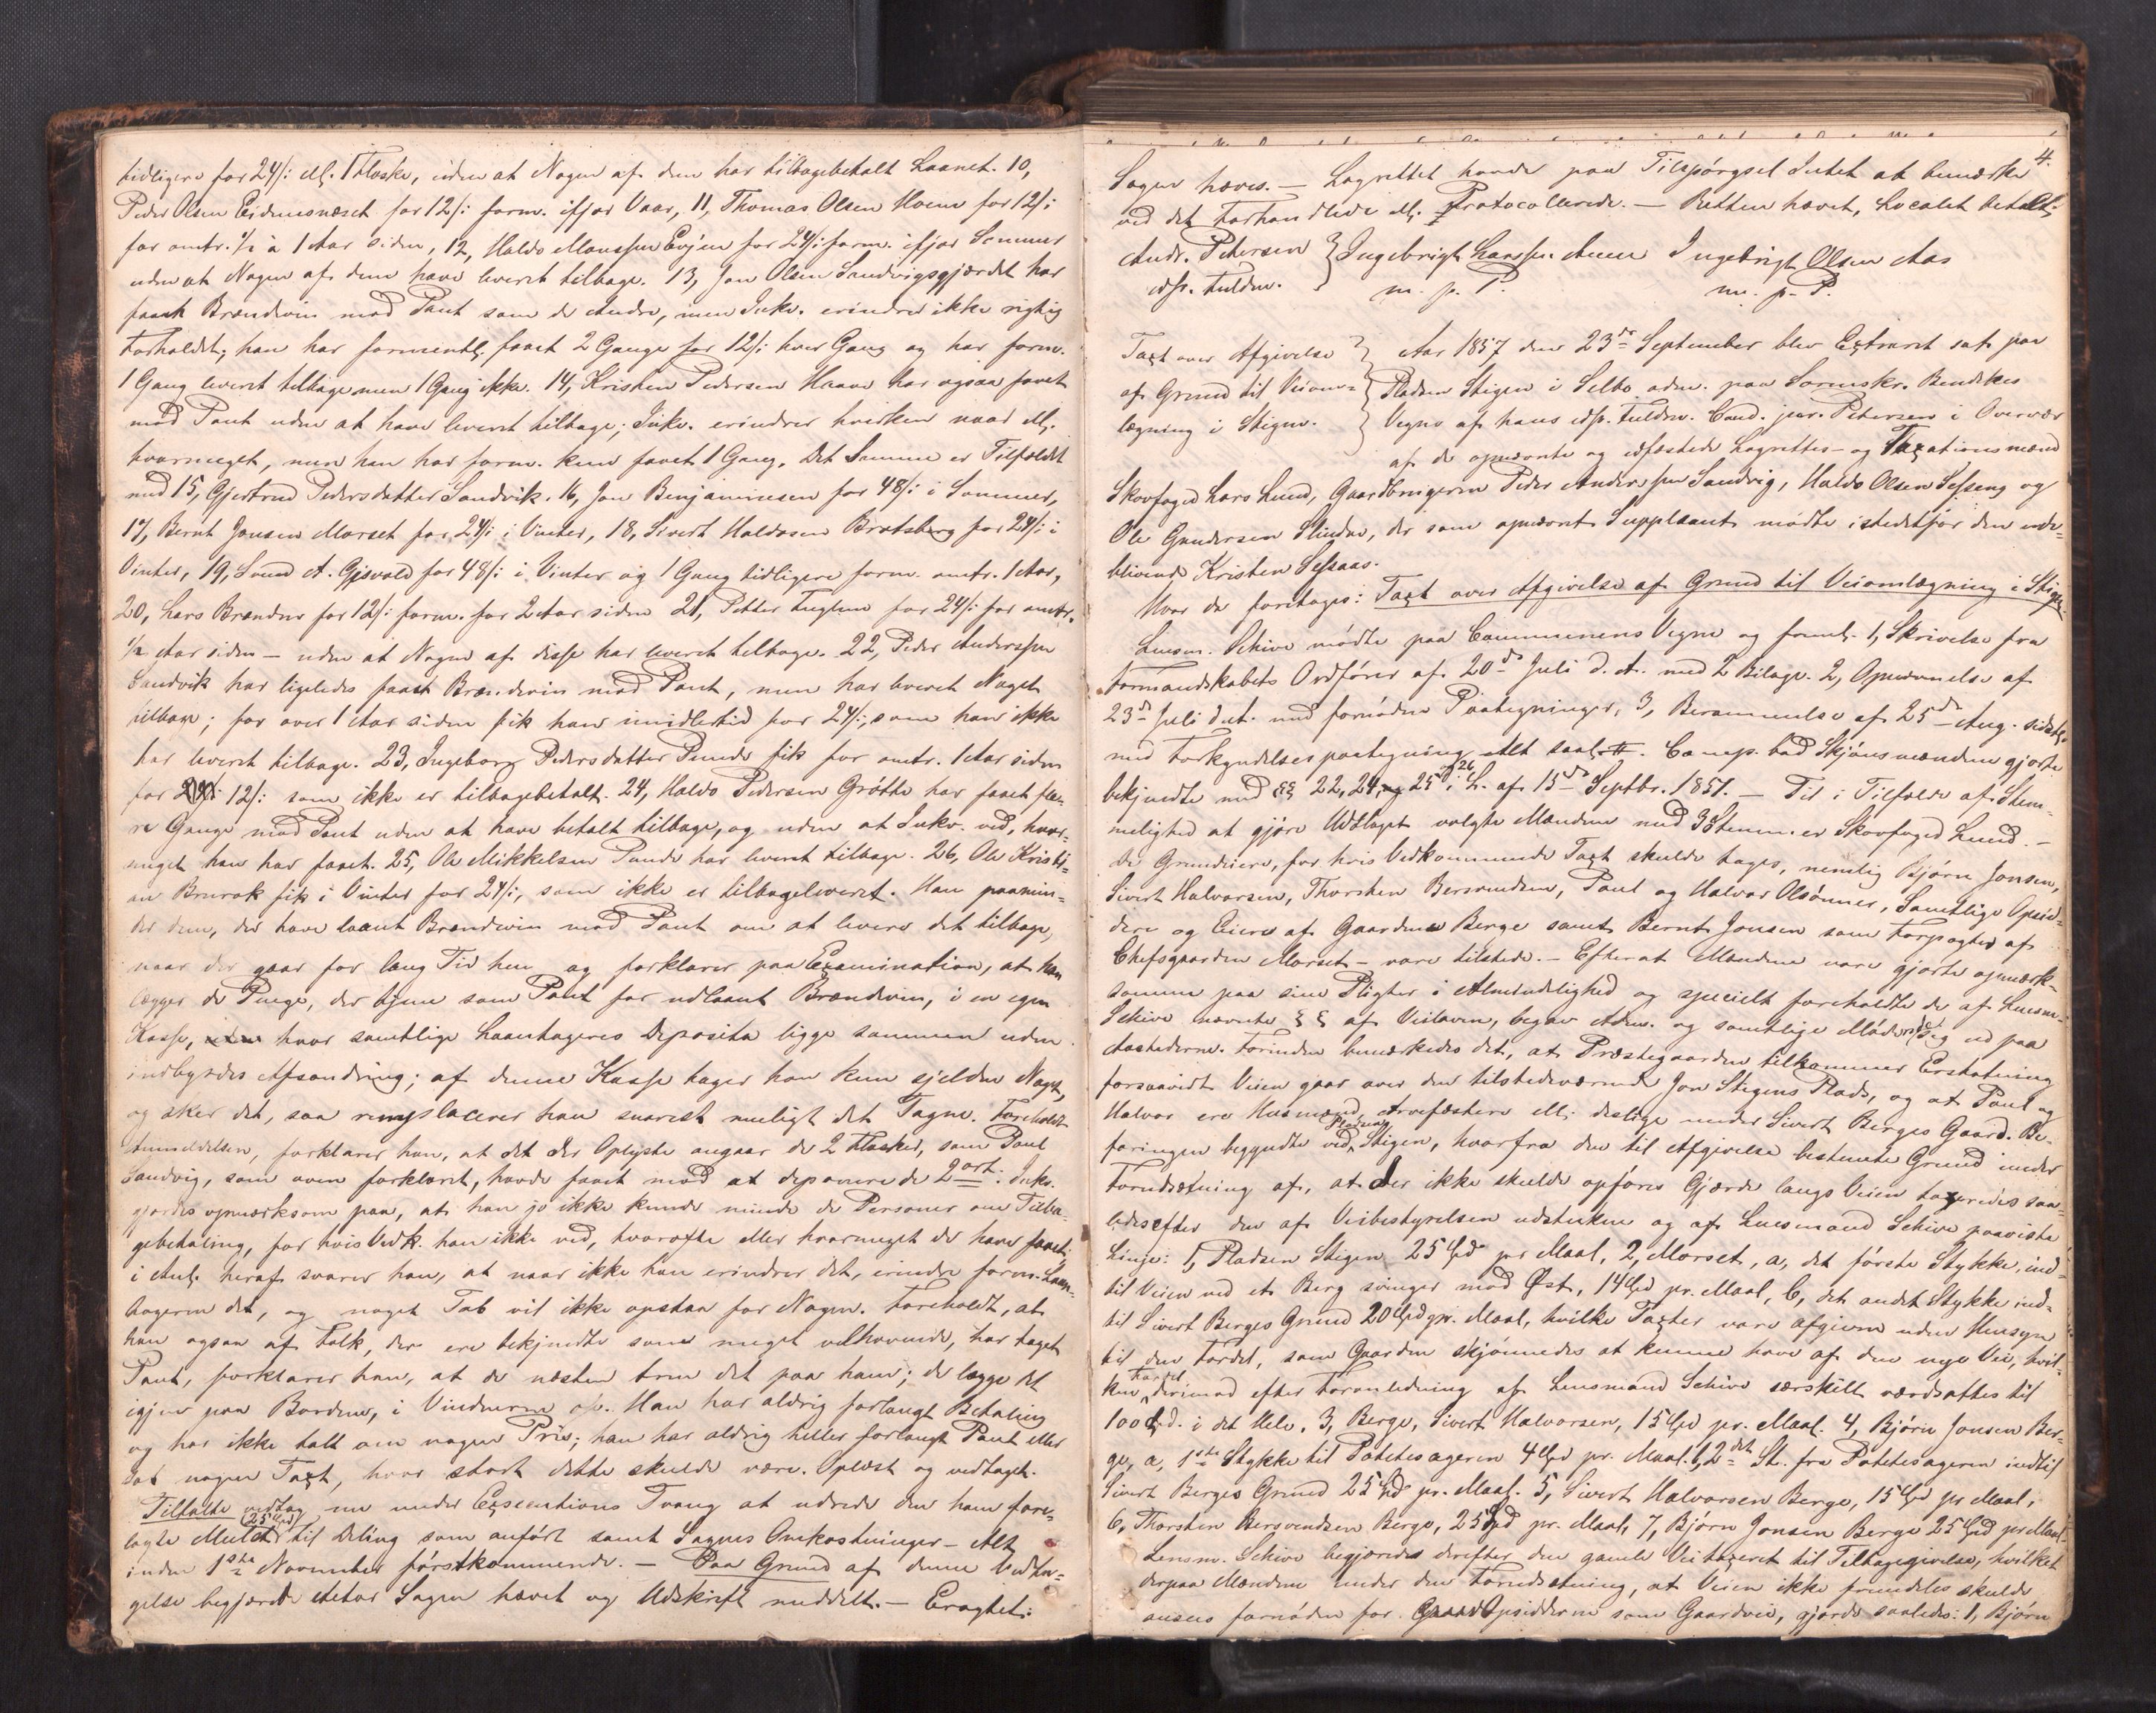 tidligere for 24/: ell. 1 Flaske, uden at Nogen af dem har tilbagebetalt Laanet. 10,
Peder Olsen Eidemsnæset for 12/: form. ifjor Vaar, 11, Thomas Olsen Moen for 12/:
for omtr. 1/2 à 1 Aar siden, 12, Haldo Monssen Evjen for 24/: form. ifjor Sommer
uden at Nogen af dem have leveret tilbage. 13, Jon Olsen Sandvigsgjærdet har
faaet Brændevin mod Pant som de Andre, men Inkv. erindrer ikke rigtig
Forholdet; han har formentl. faaet 2 Gange for 12/: hver Gang og har form.
1 Gang leveret tilbage men 1 Gang ikke. 14, Kristen Pedersen Haave har ogsaa faaet
mod Pant uden at have leveret tilbage; Inkv. erindrer hverken naar ell.
hvormeget, men han har form. kun faaet 1 Gang. Det Samme er Tilfældet
med 15, Gjertrud Pedersdatter Sandvik. 16, Jon Benjaminsen for 48/: i Sommer,
17, Bernt Jonsen Morset for 24/: i Vinter, 18, Sivert Haldosen Bratsberg for 24/: i
Vinter, 19, Svend A. Gjsvold for 48/: i Vinter og 1 Gang tidligere form. omtr. 1 Aar,
20, Lars Brændes for 12/: form. for 2 Aar siden 21, Petter Fuglem for 24/: for omtr.
1/2 Aar siden – uden at Nogen af disse har leveret tilbage. 22, Peder Anderssen
Sandvik har ligeledes faaet Brændevin mod Pant, men har leveret Noget
tilbage; for over 1 Aar siden fik han imidlertid for 24/:, som han ikke
har leveret tilbage. 23, Ingeborg Pedersdatter Punde fik for omtr. 1 Aar siden
for 12/: som ikke er tilbagebetalt. 24, Haldo Pedersen Grøtte har faaet fle-
re Gange mod Pant uden at have betalt tilbage, og uden at Inkv. ved, hvor-
meget han har faaet. 25, Ole Mikkelsen Punde har leveret tilbage. 26, Ole Kristi-
an Brurok fik i Vinter for 24/:, som ikke er tilbageleveret. Han paamin-
der dem, der have laant Brændevin mod Pant om at levere det tilbage,
naar der gaar for lang Tid hen og forklarer paa Examination, at han
lægger de Penge, der tjene som Pant for udlaant Brændevin, i en egen
Kasse, hvor samtlige Laantageres Deposita ligge sammen uden
indbyrdes Afsondring; af denne Kasse tager han kun sjelden Noget,
og sker det, saa remplacerer han snarest muligt det Tagne. Foreholdt
Anmeldelsen, forklarer han, at det der Oplyste angaar de 2 Flasker, som Paul
Sandvig, som oven forklaret, havde faaet mod at deponere de 2 ort. Inkv.
gjordes opmærksom paa, at han jo ikke kunde minde de Personer om Tilba-
gebetaling, for hvis Vedk. han ikke ved, hvorofte eller hvormeget de have faaet;
i Anl. heraf svarer han, at naar ikke han erindrer det, erindre form. Laan-
tageren det, og noget Tab vil ikke opstaa for Nogen. Foreholdt, at
han ogsaa af Folk, der ere bekjendte som meget velhavende, har taget
Pant, forklarer han, at de næsten true det paa ham; de lægge det
igjen paa Bordene, i Vinduerne o/v. Han har aldrig forlangt Betaling
og har ikke talt om nogen Pris; han har aldrig heller forlangt Pant eller
sat nogen Taxt, hvor stort dette skulde være. Oplæst og vedtaget.
Tiltalte vedtog nu under Executions Tvang at udrede den ham fore-
lagte Mulct (25 Spd) til Deling som anført samt Sagens Omkostninger – Alt
inden 1ste November førstkommende. – Paa Grund af denne Vedta-
gelse begjærede Actor Sagen hævet og Udskrift meddelt. – Eragtet:
4.
Sagen hæves. – Lagrettet havde paa Tilspørgsel Intet at bemærke
ved det Forhandlede ell. Protocollerede. – Retten hævet, Localet betalt.
Andr. Petersen } Ingebrigt Larssen Aune Ingebrigt Olsen Aas
edsv. Fuldm. m. p. P. m. p. P.
Taxt over Afgivelse } Aar 1857 den 23de September blev Extraret sat paa
af Grund til Veiom- } Pladsen Stigen i Selbo adm. paa Sorenskr. Bendikes
lægning i Stigen. } Vegne af hans edsv. Fuldm. Cand. jur. Petersen i Overvær
af de opnævnte og edfæstede Lagrettes- og Taxationsmænd
Skovfoged Lars Lund, Gaardbrugerne Peder Anderssen Sandvig, Haldo Olsen Sesseng og
Ole Gundersen Slindee, der som opnævnt Suppleant mødte istedetfor den ude-
blivende Kristen Sessaas.
Hvor da foretages: Taxt over Afgivelse af Grund til Veiomlægning i Stigen
Lensm. Schive mødte paa Communens Vegne og freml. 1, Skrivelse fra
Formandskabets Ordfører af 20de Juli d. A. med 2 Bilage. 2, Opnævnelse af
23de Juli d. A. med fornødne Paategninger, 3, Berammelse af 25de Aug. sidstl.
med Forkyndelsespaategning Alt saal. Comp. bad Skjønsmændene gjorte
bekjendte med §§ 22, 24, 25 og 26 i L. af 15de Septbr. 1851. – Til i Tilfælde af Stem-
melighed at gjøre Udslaget valgte Mændene med 3 Stemmer Skovfoged Lund. –
De Grundeiere, for hvis Vedkommende Taxt skulde tages, nemlig Bjørn Jonsen,
Sivert Halvorsen, Thorsten Bersvendsen, Paul og Halvor Olsønner, Samtlige Opsid-
dere og Eiere af Gaardene Berge samt Bernt Jonsen som Forpagter af
Chefsgaarden Morset – vare tilstede. – Efterat Mændene vare gjorte opmærk-
somme paa sine Pligter i Almindelighed og specielt foreholdte de af Lensm.
Schive nævnte §§ af Veiloven, begav Adm. og samtlige Mødende sig ud paa
Aastederne. Forinden bemærkedes det, at Præstegaarden tilkommer Erstatning
forsaavidt Veien gaar over den tilstedeværende Jon Stigens Plads, og at Paul og
Halvor ere Husmænd, Arvefæstere ell. deslige under Sivert Berges Gaard. Be-
faringen begyndte ved Pladsen Stigen, hvorfra den til Afgivelse bestemte Grund under
Forudsætning af, at der ikke skulde opføres Gjærde langs Veien taxeredes saa-
ledes efter den af Veibestyrelsen udstukne og af Lensmand Schive paaviste
Linje: 1, Pladsen Stigen 25 Spd pr Maal, 2, Morset, a, det første Stykke, ind-
til Veien ved et Berg svinger mod Øst, 14 Spd pr. Maal, b, det andet Stykke ind-
til Sivert Berges Grund 20 Spd pr. Maal, hvilke Taxter vare afgivne uden Hensyn
til den Fordel, som Gaarden skjønnedes at kunne have af den nye Vei, hvil-
ken Fordel derimod efter Foranledning af Lensmand Schive særskilt værdsattes til
100 Spd. i det Hele. 3, Berge, Sivert Halvorsen, 15 Spd pr. Maal. 4, Bjørn Jonsen Ber-
ge, a, 1ste Stykke til Potetesageren 4 Spd pr. Maal. b, 2det St. fra Potetesageren indtil
Sivert Berges Grund 25 Spd pr. Maal. 5, Sivert Halvorsen Berge, 15 Spd pr Maal,
6, Thorsten Bersvendsen Berge, 25 Spd pr. Maal, 7, Bjørn Jonsen Berge 25 Spd pr Maal
Lensm. Schive begjærede derefter den gamle Vei taxeret til Tilbagegivelse, hvilket
derpaa Mændene under den Forudsætning, at Veien ikke fremdeles skulde
ansees fornøden for Opsidderne som Gaardvei, gjorde saaledes: 1, Bjørn